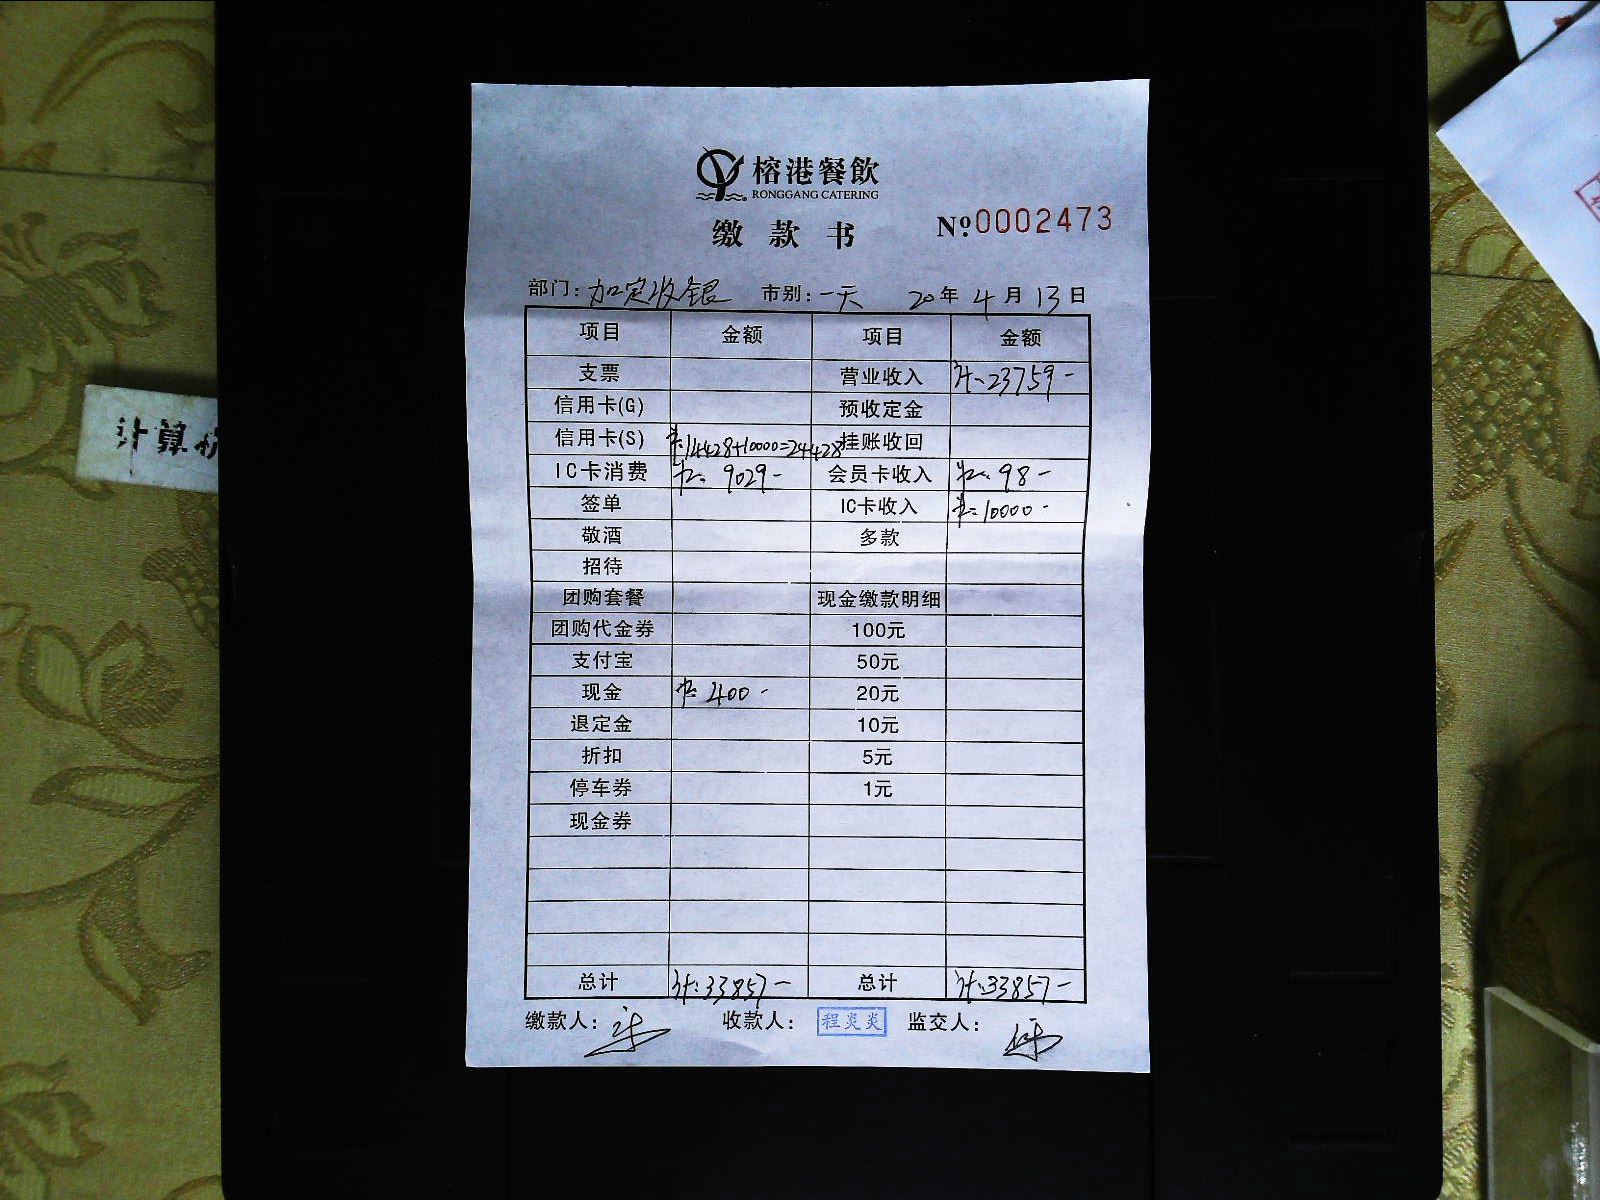 榕港餐飲
RONGGANG CATERING
缴款书
№0002473
部门：加定收银 市别：一天 20年4月13日
项目 金额 项目 金额
支票 营业收入 计:23759-
信用卡(G) 预收定金
信用卡(S) 14428+10000=24428 挂账收回
IC卡消费 9029- 会员卡收入 98-
签单 IC卡收入 10000-
敬酒 多款
招待
团购套餐 现金缴款明细
团购代金券 100元
支付宝 50元
现金 400- 20元
退定金 10元
折扣 5元
停车券 1元
现金券
总计 计:33857- 总计 计:33857-
缴款人： 收款人：程炎炎 监交人：
计算机